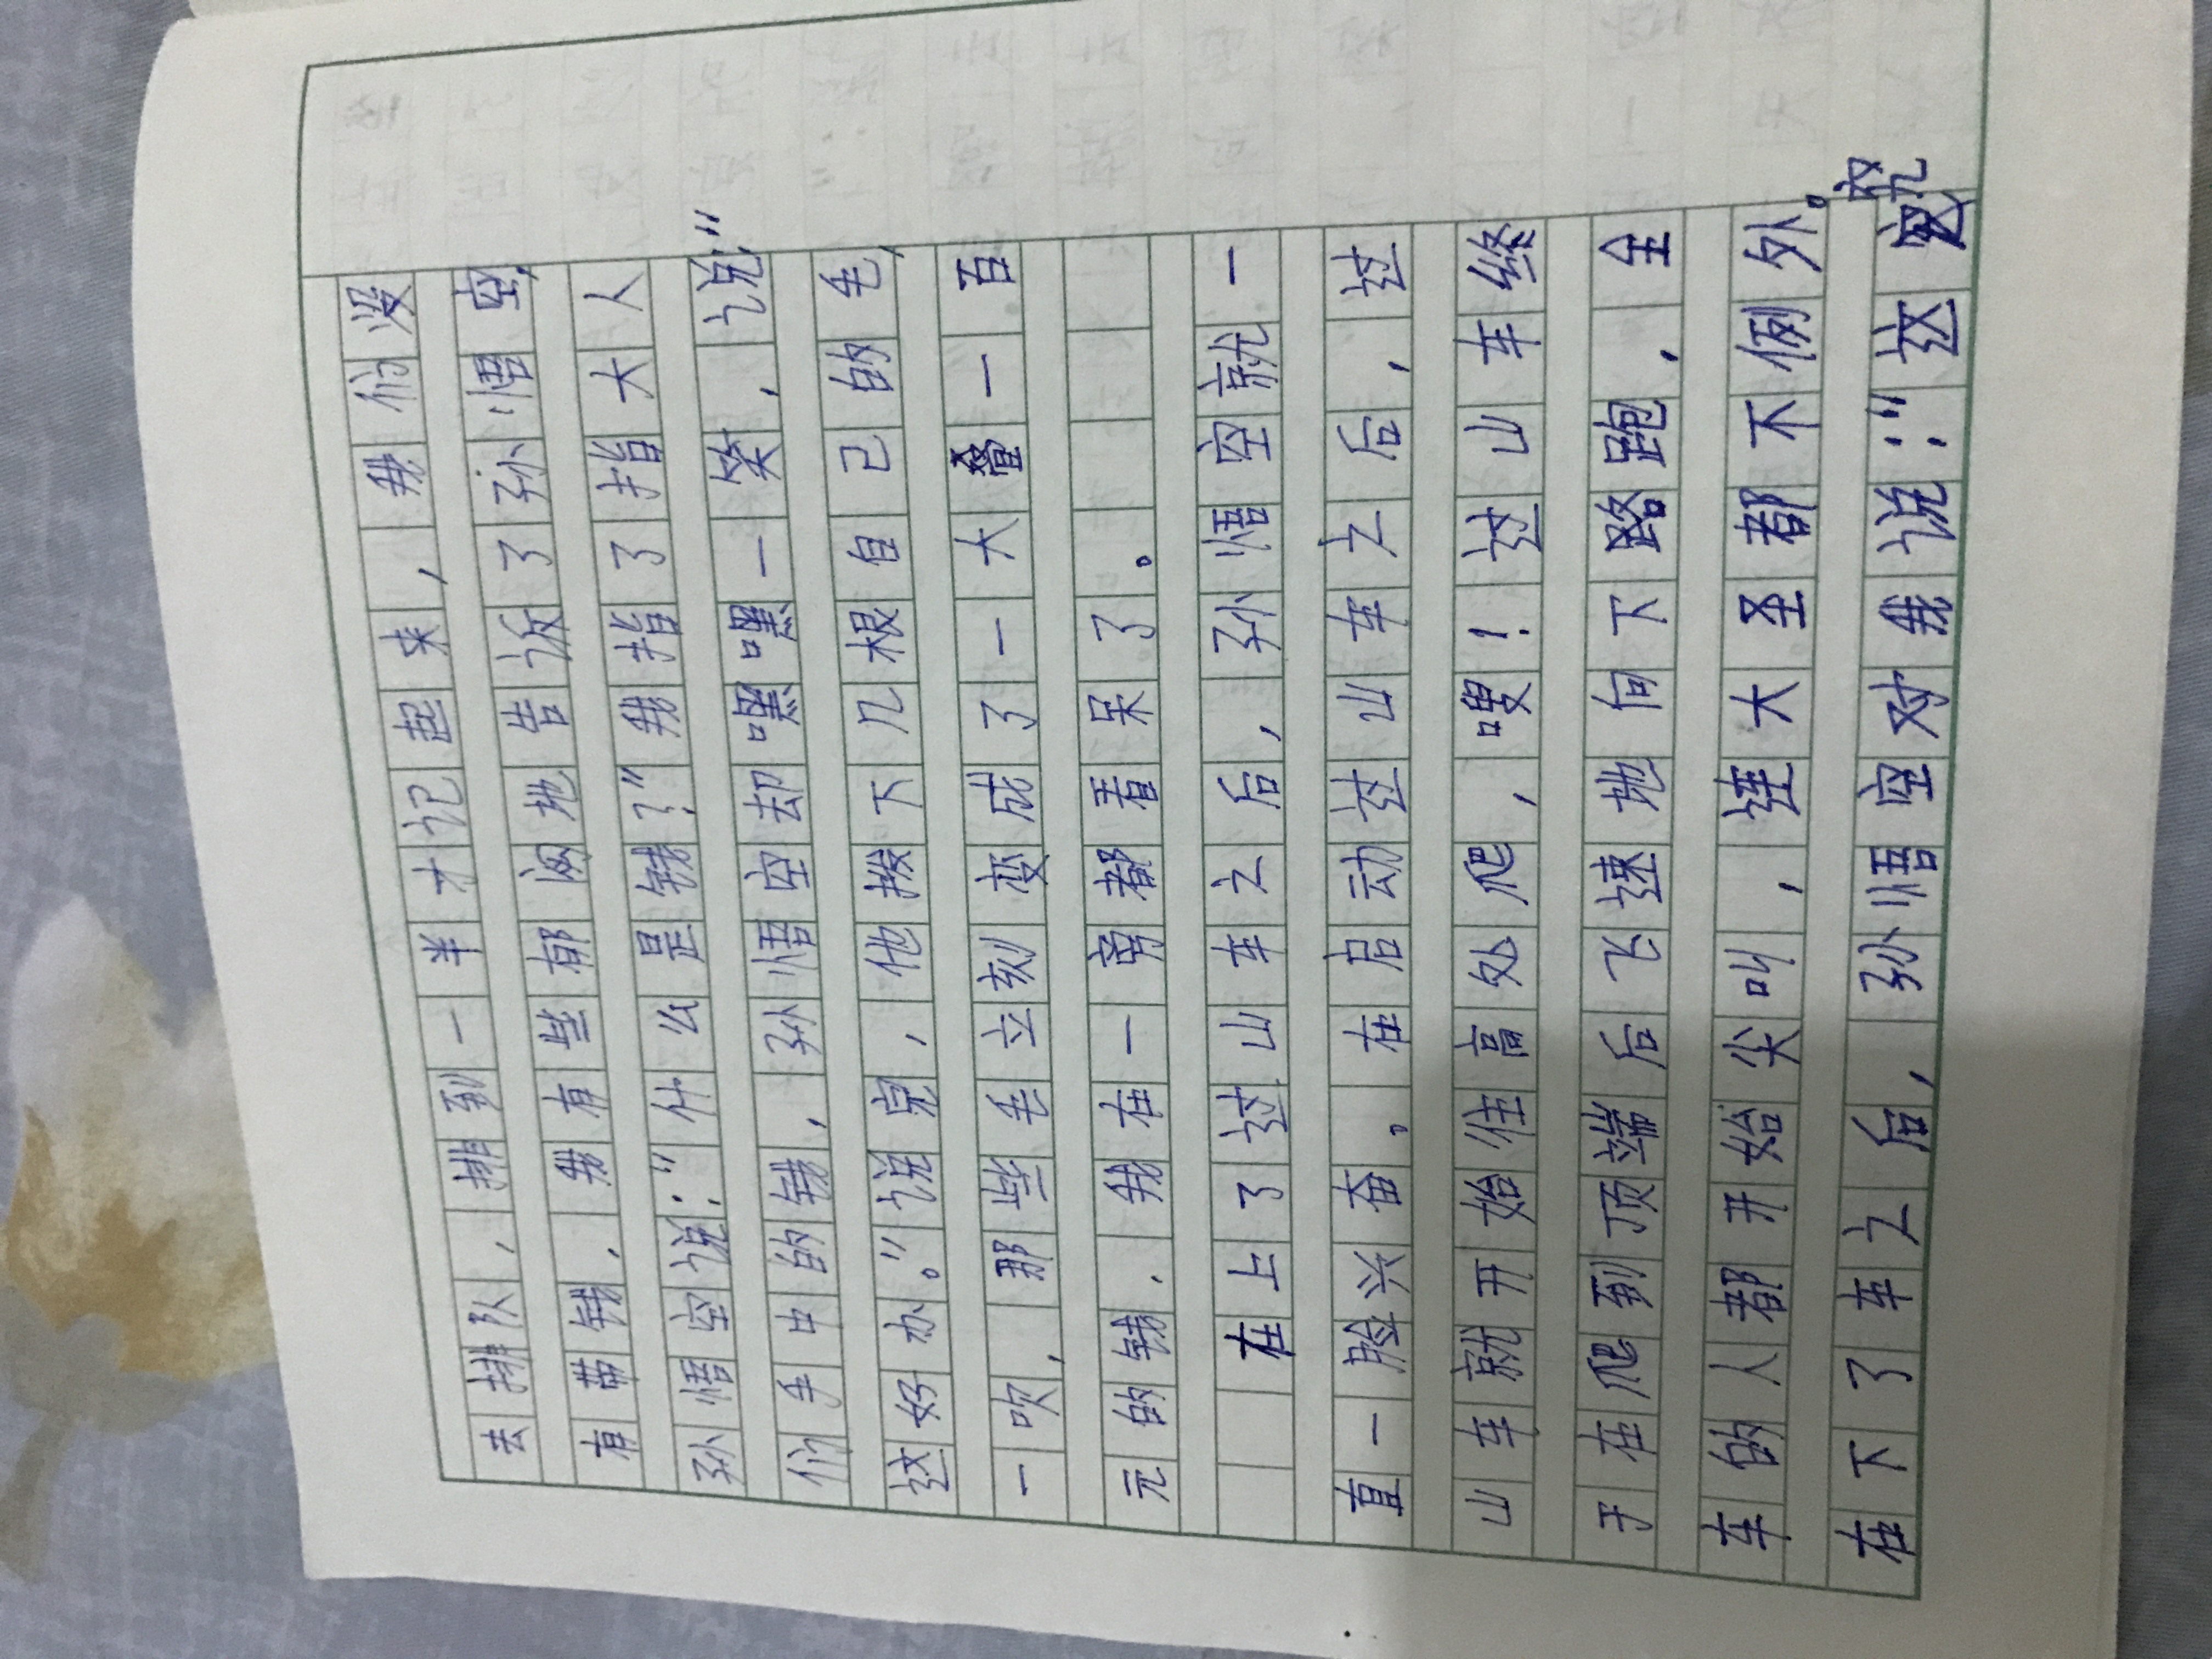 去排队，排到一半才记起来，我们没
有带钱，我有些郁闷地告诉了孙悟空，
孙悟空说：“什么是钱？”我指了指大人
们手中的钱，孙悟空却嘿嘿一笑，说：“
这好办。”说完，他拨下几根自己的毛，
一吹，那些毛立刻变成了一大叠一百
元的钱，我在一旁都看呆了。
在上了过山车之后，孙悟空就一
直一脸兴奋。在启动过山车之后，过
山车就开始往高处爬，嗖！过山车终
于在爬到顶端后飞速地向下路跑，全
车的人都开始尖叫，连大圣都不例外。
在下了车之后，孙悟空对我说：“这究